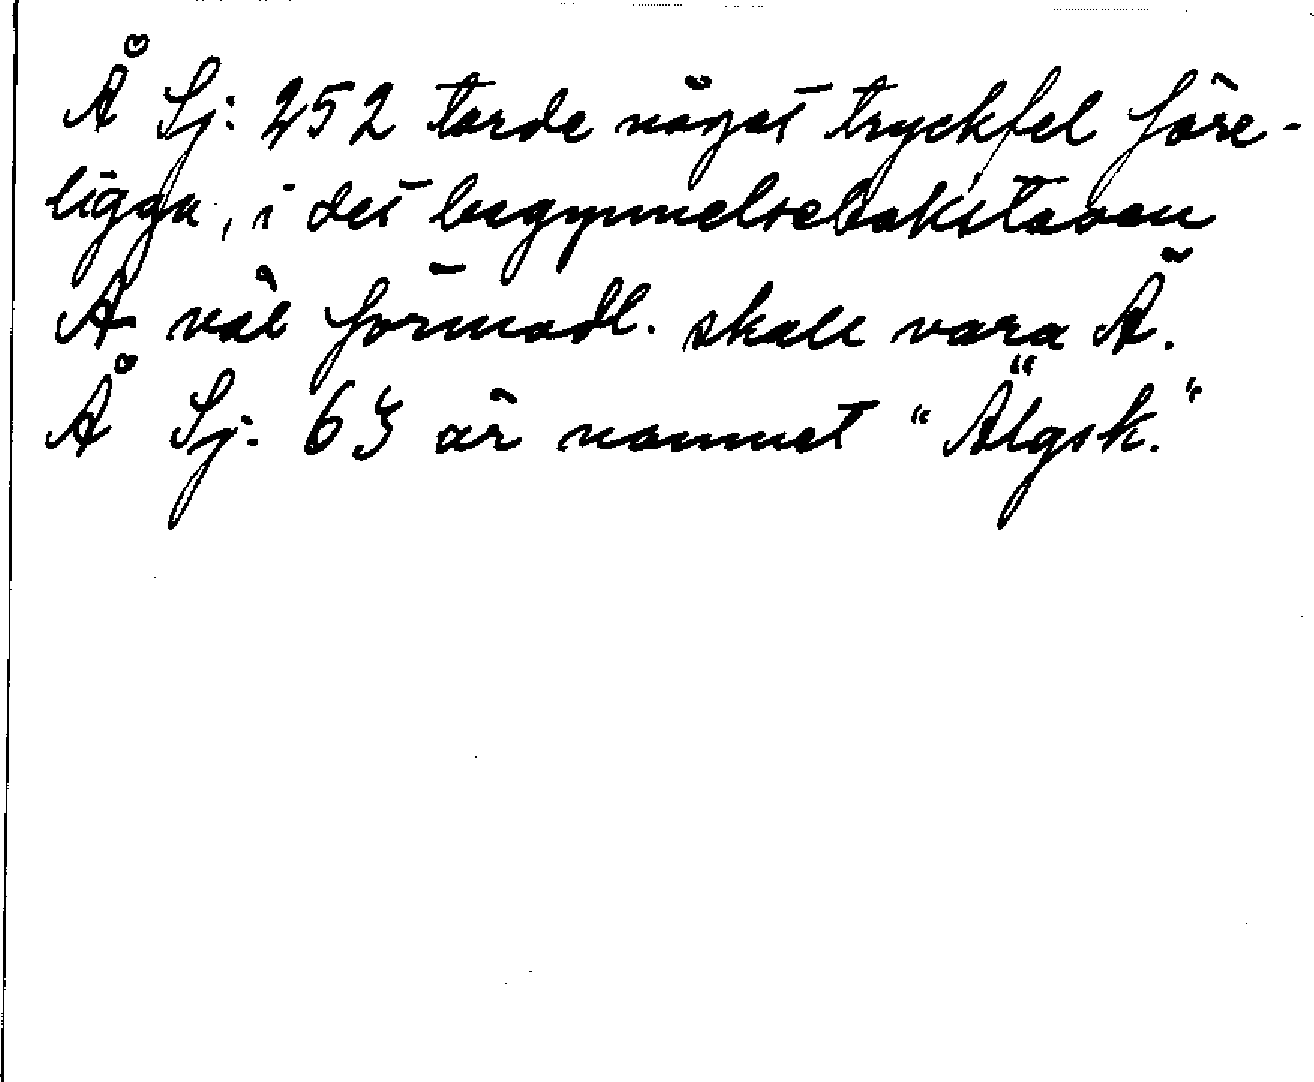 Å Sj: 252 torde något tryckfel före-
ligga, i det begynnelsebokstaven
A väl förmodl. skall vara Ä.
Å Sj. 63 är namnet "Älgsk."